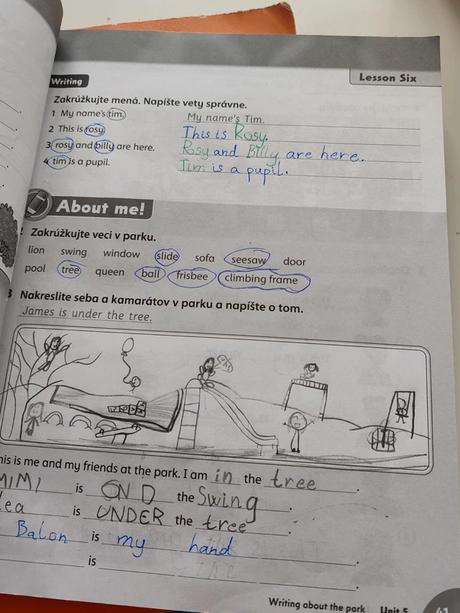 Writing
Lesson Six
Zakrúžkujte mená. Napíšte vety správne.
1 My name's tim. My name's Tim.
2 This is rosy. This is Rosy.
3 rosy and billy are here. Rosy and Billy are here.
4 tim is a pupil. Tim is a pupil.
About me!
Zakrúžkujte veci v parku.
lion swing window slide sofa seesaw door
pool tree queen ball frisbee climbing frame
3 Nakreslite seba a kamarátov v parku a napíšte o tom.
James is under the tree.
This is me and my friends at the park. I am in the tree.
MIMI is ON D the Swing.
lea is UNDER the tree.
Balon is my hand.
is
Writing about the park Unit 5 41